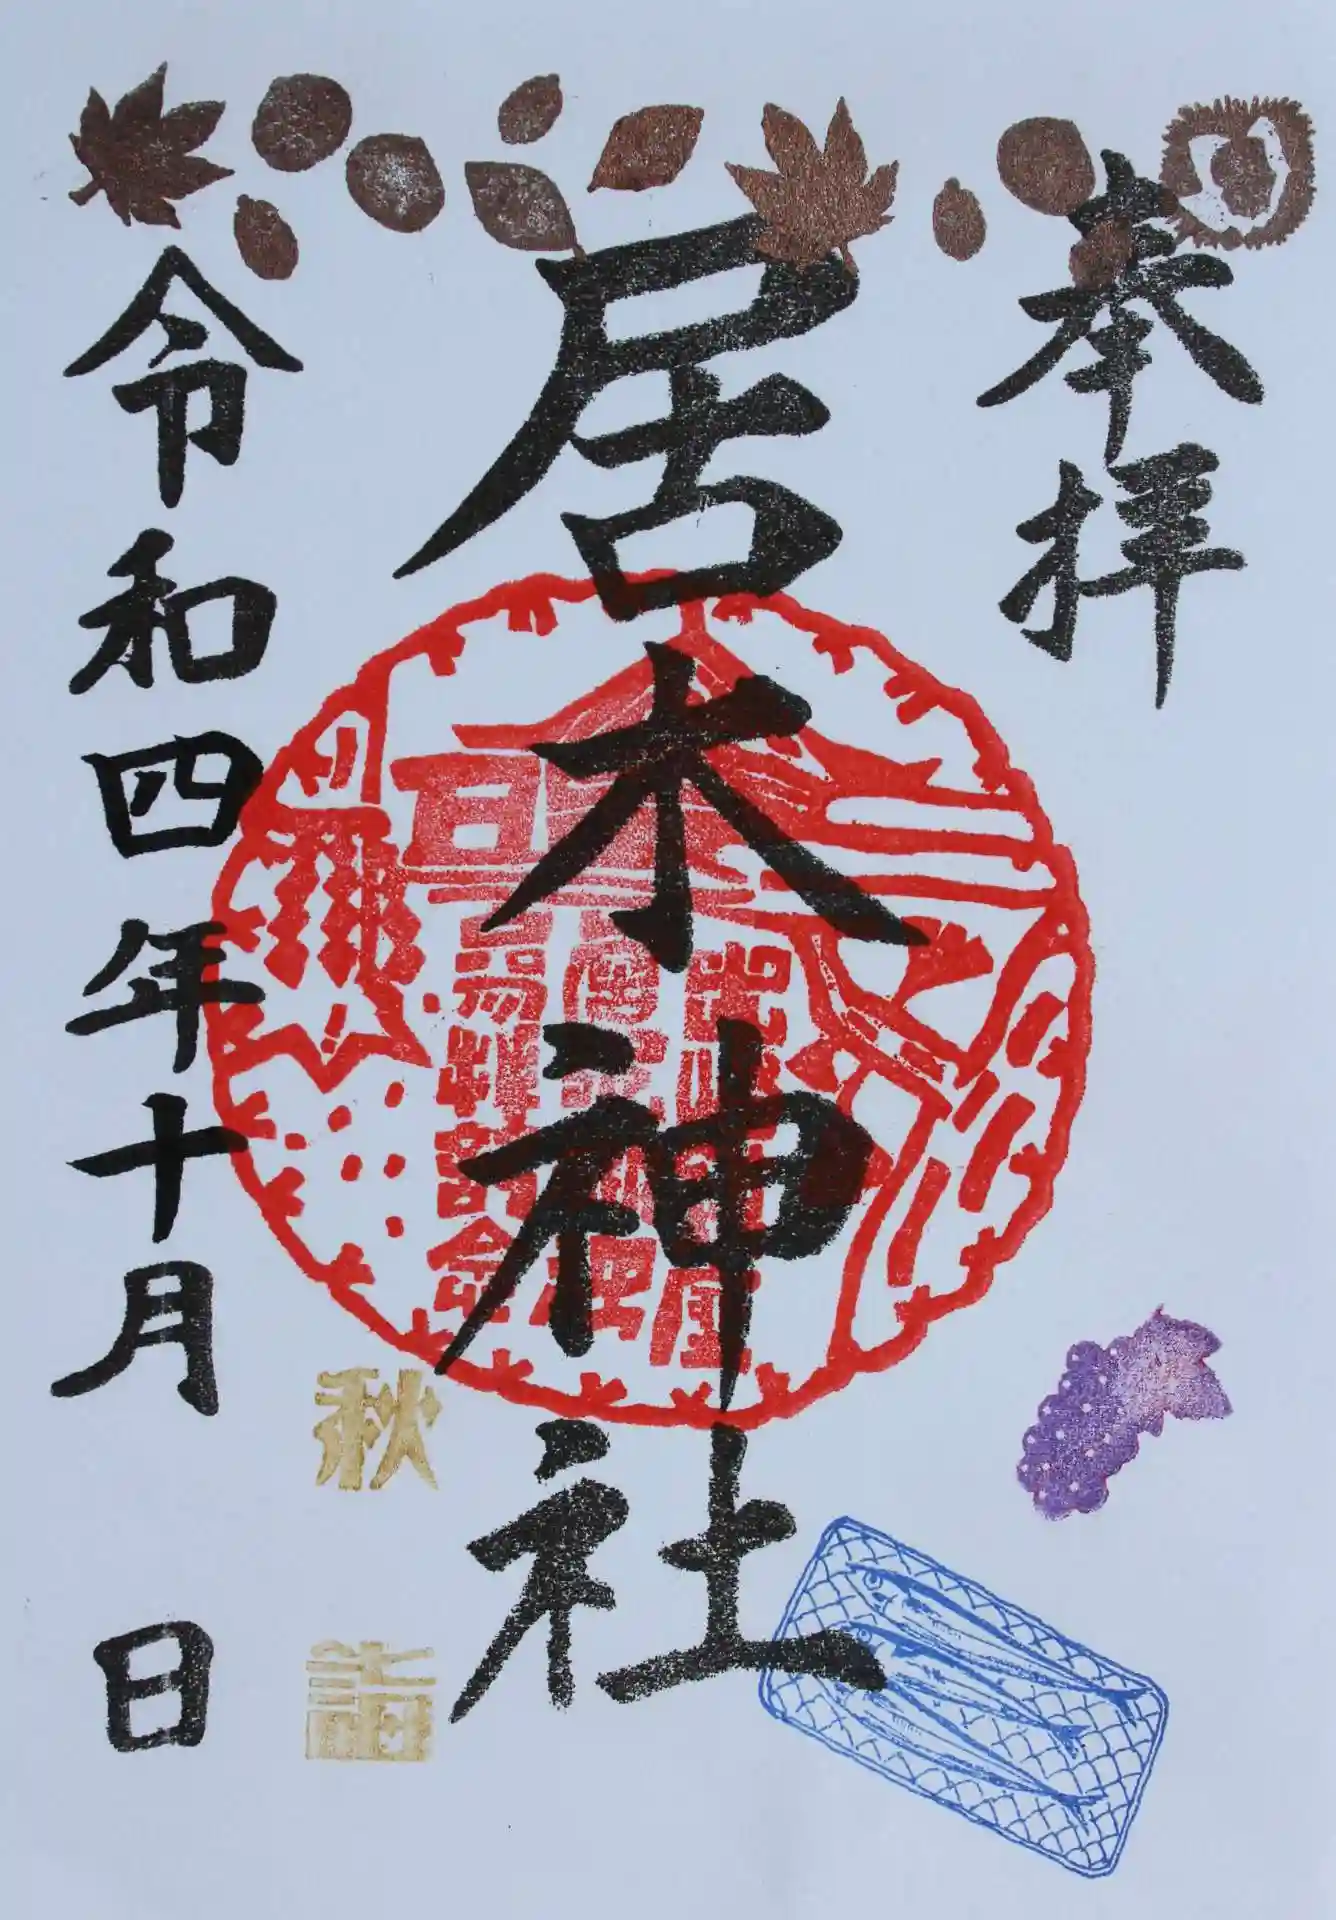 奉拝
居木神社
秋詣
令和四年十月 日